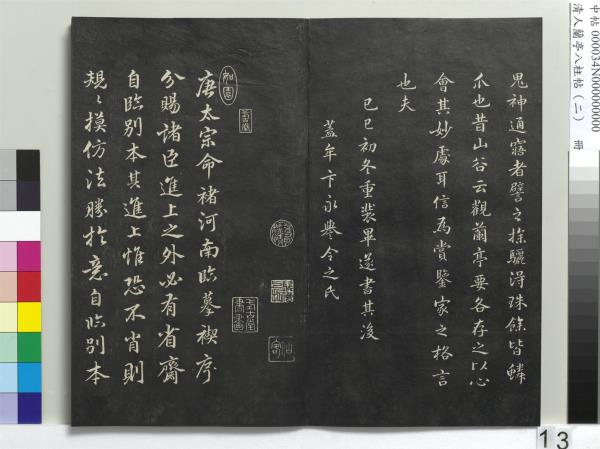 鬼神通寤者譬之探驪得珠餘皆鱗
爪也昔山谷云觀蘭亭要各存之以心
會其妙處耳信為賞鑒家之格言
也夫
己巳初冬重裝畢遂書其後
蓋牟卞永譽令之氏
唐太宗命褚河南臨摹禊序
分賜諸臣進上之外必有省齋
自臨別本其進上惟恐不肖則
規〻摸仿法勝於意自臨別本
中帖 000034N000000000
清人蘭亭八柱帖(二) 冊
13